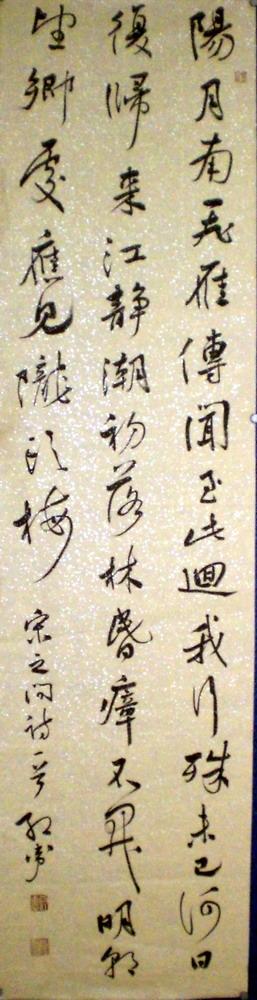 陽月南飛雁傳聞至此迴我行殊未已何日
復歸来江静潮初落林昏瘴不開明朝
望鄉處應見隴頭梅 宋之问诗一首